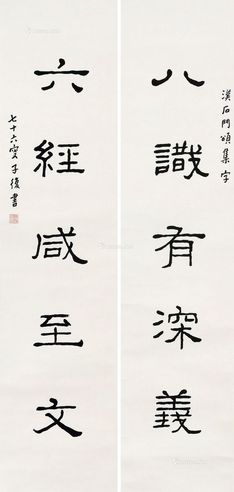 漢石門頌集字
八識有深義
六經咸至文
七十六叟子復書